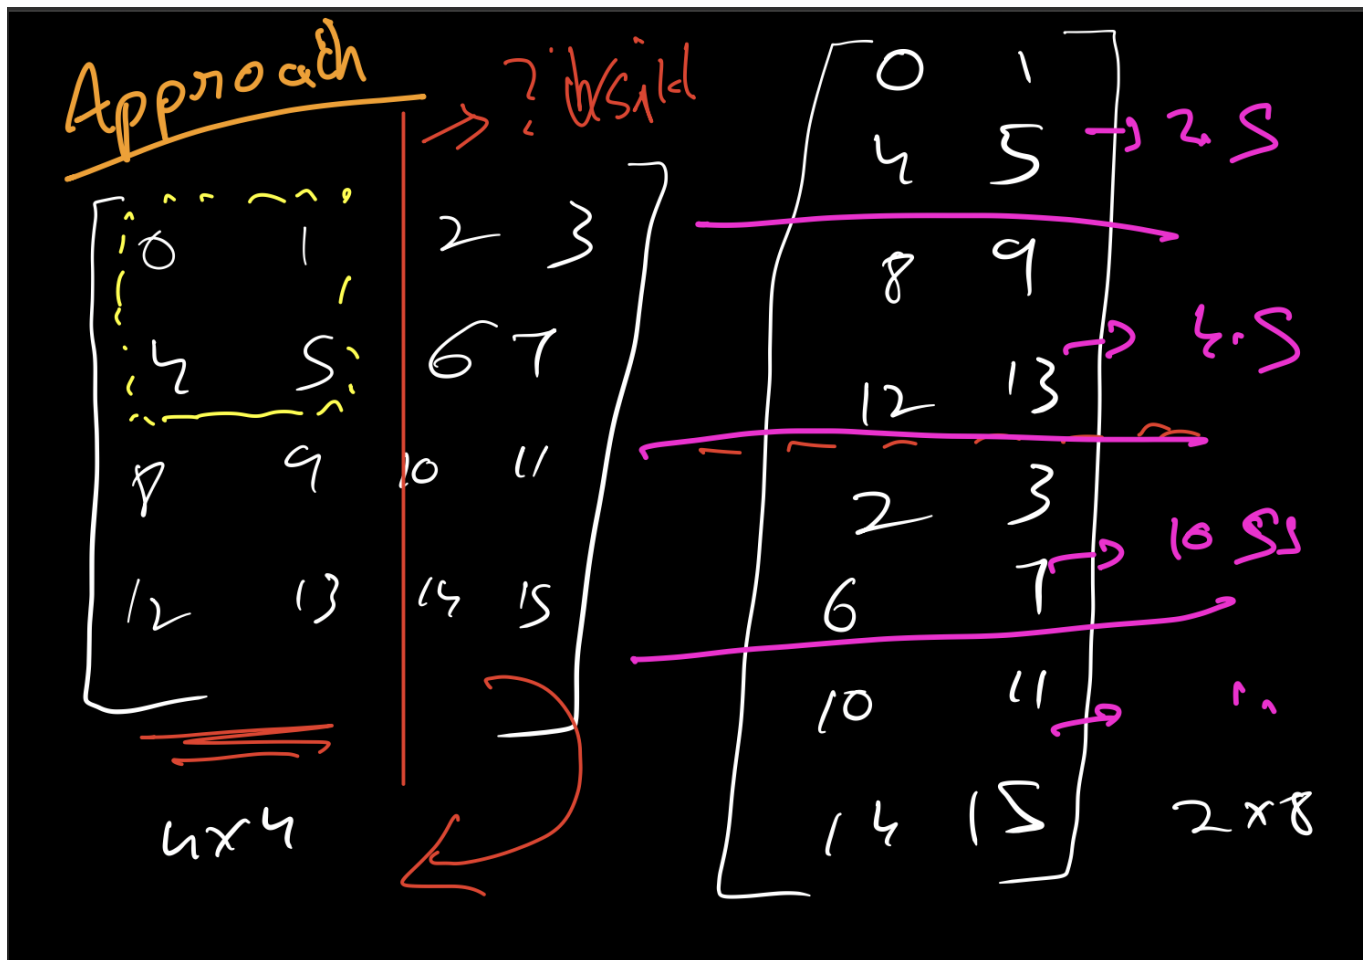 Approach
0 1 2 3
4 5 6 7
8 9 10 11
12 13 14 15
4x4
0 1
4 5
2.5
8 9
12 13
4.5
2 3
6 7
10
10 11
14 15
2x8